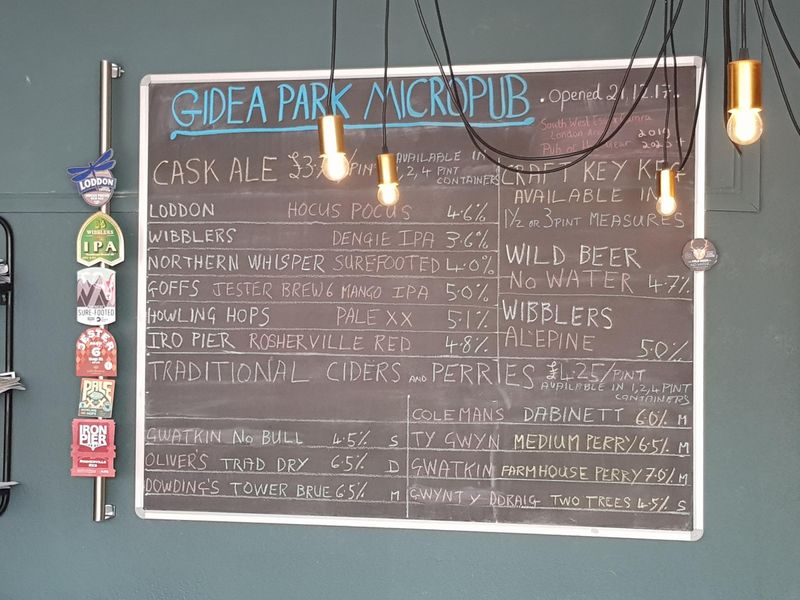 GIDEA PARK MICROPUB
Opened 21.12.17.
South West Essex Camra
London Area 2019
Pub of the year 2023
CASK ALE £3.7 /PINT
AVAILABLE IN
1, 2, 4 PINT
CONTAINERS
LODDON HOCUS POCUS 4.6%
WIBBLERS DENGIE IPA 3.6%
NORTHERN WHISPER SUREFOOTED 4.0%
GOFFS JESTER BREW 6 MANGO IPA 5.0%
HOWLING HOPS PALE XX 5.1%
IRO PIER ROSHERVILLE RED 4.8%
CRAFT KEY KEG
AVAILABLE IN
1/2 OR 3 PINT MEASURES
WILD BEER
NO WATER 4.7%
WIBBLERS
ALEPINE 5.0%
TRADITIONAL CIDERS AND PERRIES £4.25/PINT
AVAILABLE IN 1, 2, 4 PINT
CONTAINERS
GWATKIN NO BULL 4.5% S
OLIVER'S TRAD DRY 6.5% D
DOWDING'S TOWER BRUE 6.5% M
COLEMANS DABINETT 6.0% M
TY GWYN MEDIUM PERRY 6.5% M
GWATKIN FARMHOUSE PERRY 7.0% M
GWYNT Y DDRAIG TWO TREES 4.5% S
LODDON
WIBBLERS
IPA
SURE-FOOTED
JESTER
6
PALE
IRON
PIER
ROSHERVILLE
RED